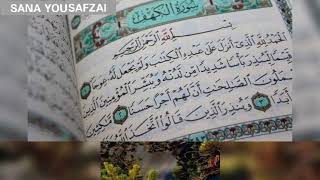 SANA YOUSAFZAI
سُورَةُ الْكَهْفِ
بِسْمِ اللَّهِ الرَّحْمَٰنِ الرَّحِيمِ
الْحَمْدُ لِلَّهِ الَّذِي أَنزَلَ عَلَىٰ عَبْدِهِ الْكِتَٰبَ وَلَمْ يَجْعَل لَّهُ عِوَجَا ۝١
قَيِّمًا لِّيُنذِرَ بَأْسًا شَدِيدًا مِّن لَّدُنْهُ وَيُبَشِّرَ الْمُؤْمِنِينَ الَّذِينَ
يَعْمَلُونَ الصَّٰلِحَٰتِ أَنَّ لَهُمْ أَجْرًا حَسَنًا ۝٢ مَّٰكِثِينَ
أَبَدًا ۝٣ وَيُنذِرَ الَّذِينَ قَالُوا اتَّخَذَ